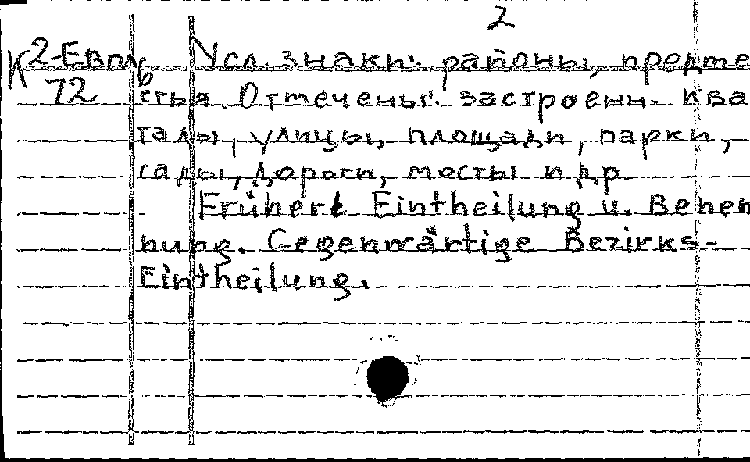 2
К 2-Евпл Усл. знаки: районы, предме
72 стья. Отмечены: застроенн. ква
талы, улицы, площади, парки,
сады, дороги, мосты и др.
Frühere Eintheilung u. Benen
nung. Gegenwärtige Bezirks-
Eintheilung.